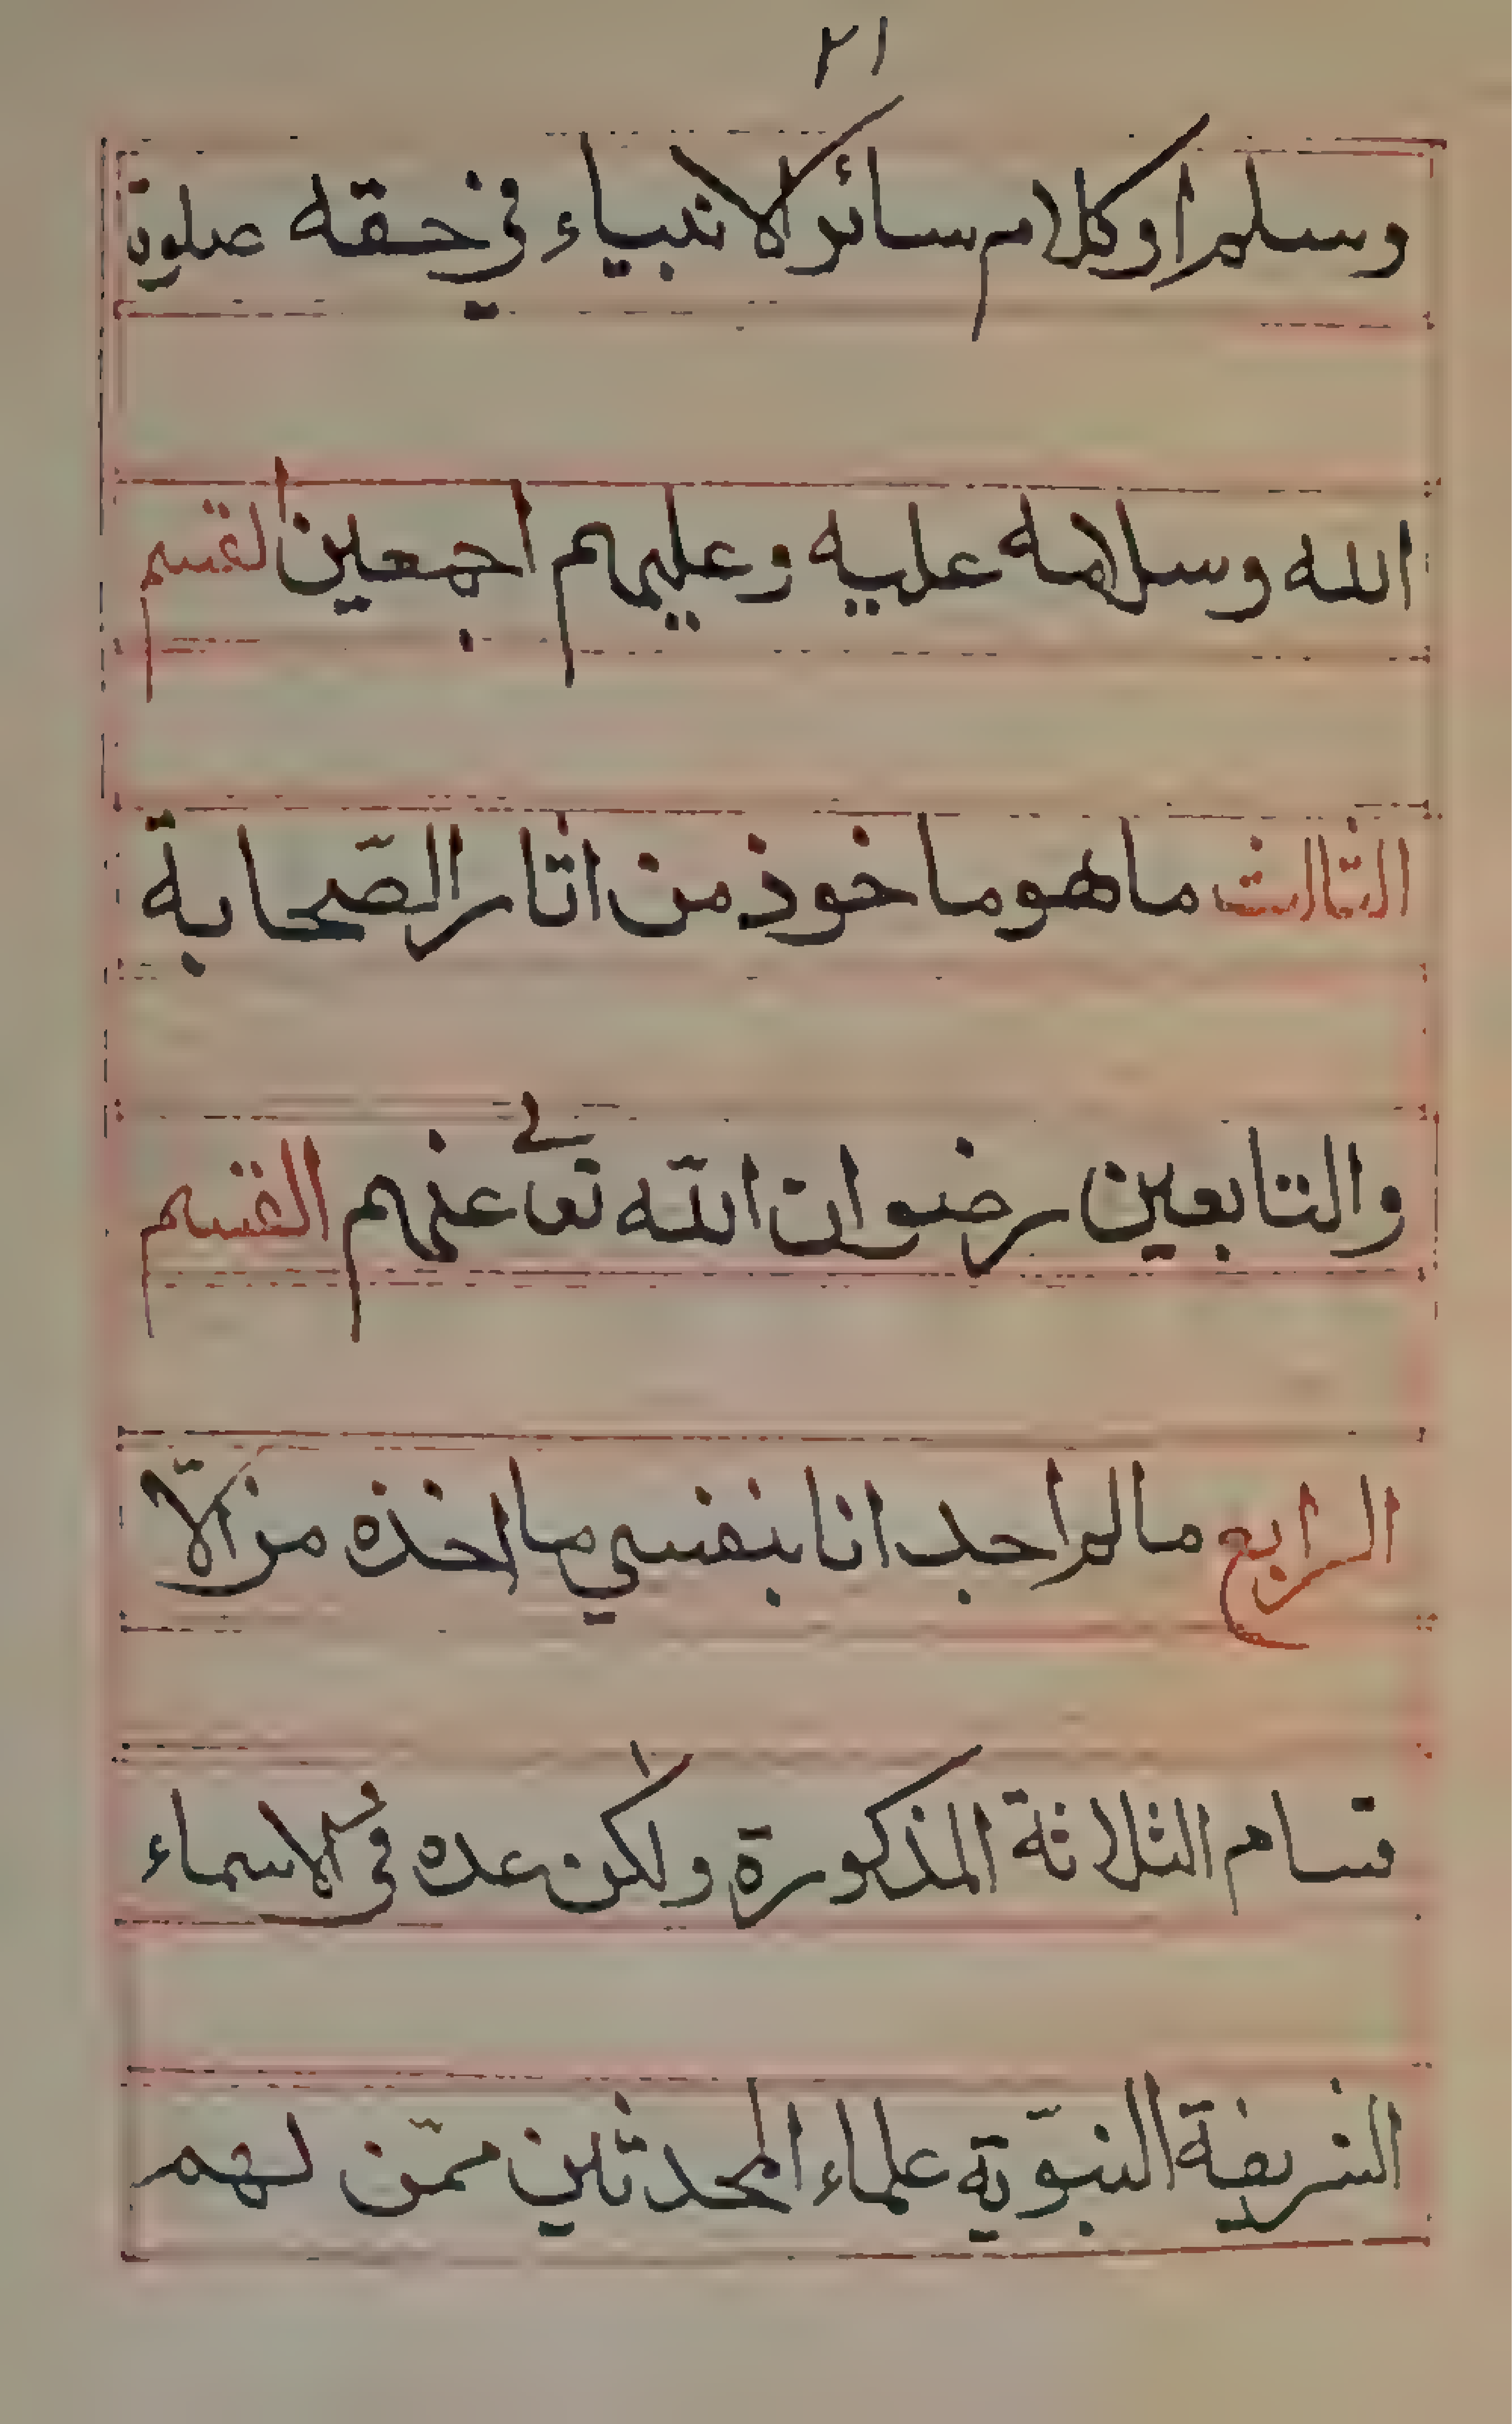 ٢١
وسلم او كلام سائر الانبياء في حقه صلوة
الله وسلامه عليه وعليهم اجمعين القسم
الثالث ما هو ماخوذ من اثار الصّحابة
والتابعين رضوان الله تعالى عنهم القسم
الرابع ما لم اجد انا بنفسي ما اخذه من الا
قسام الثلاثة المذكورة ولكن عده في الاسماء
الشريفة النبوّية علماء المحدثين ممّن لهم